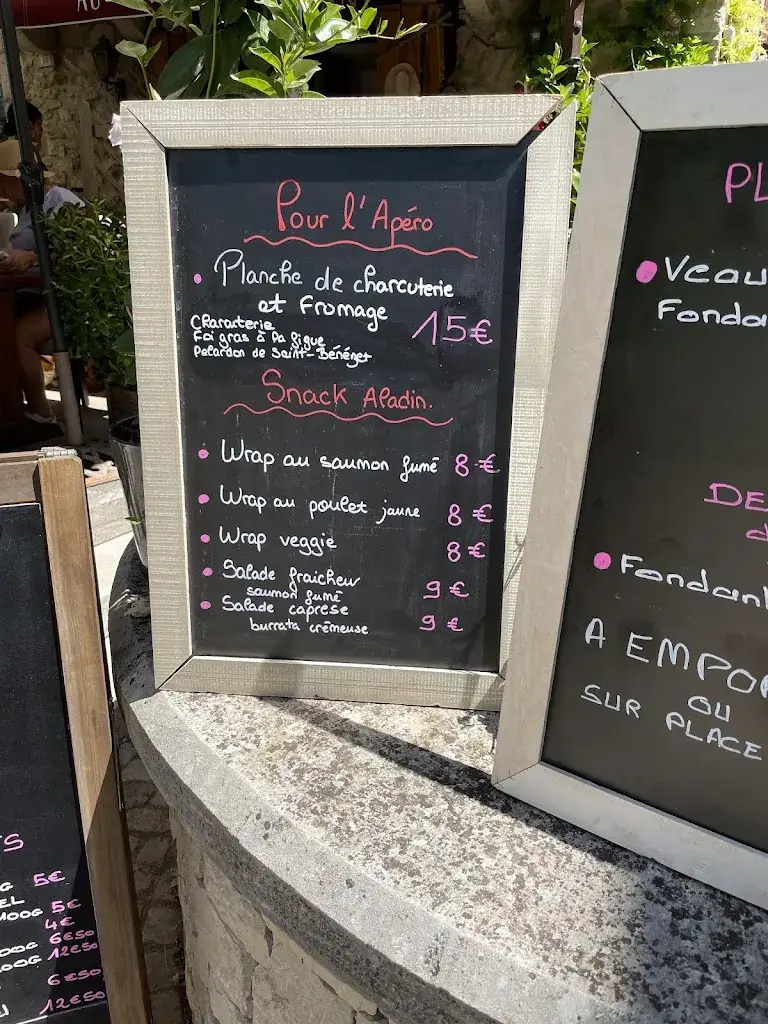 Pour l'Apéro
• Planche de charcuterie
et Fromage 15€
Charcuterie
Foi gras à la figue
Pelardon de Saint-Bénézet
Snack Aladin.
• Wrap au saumon fumé 8€
• Wrap au poulet jaune 8€
• Wrap veggie 8€
• Salade fraicheur 9€
saumon fumé
• Salade caprese 9€
burrata crémeuse
PL
• Veau
Fonda
DE
d
• Fondant
A EMPO
OU
SUR PLACE
TS
G 5€
EL
MOOG 5€
4€
OOG 6€50
OOG 12€50
6€50
12€50